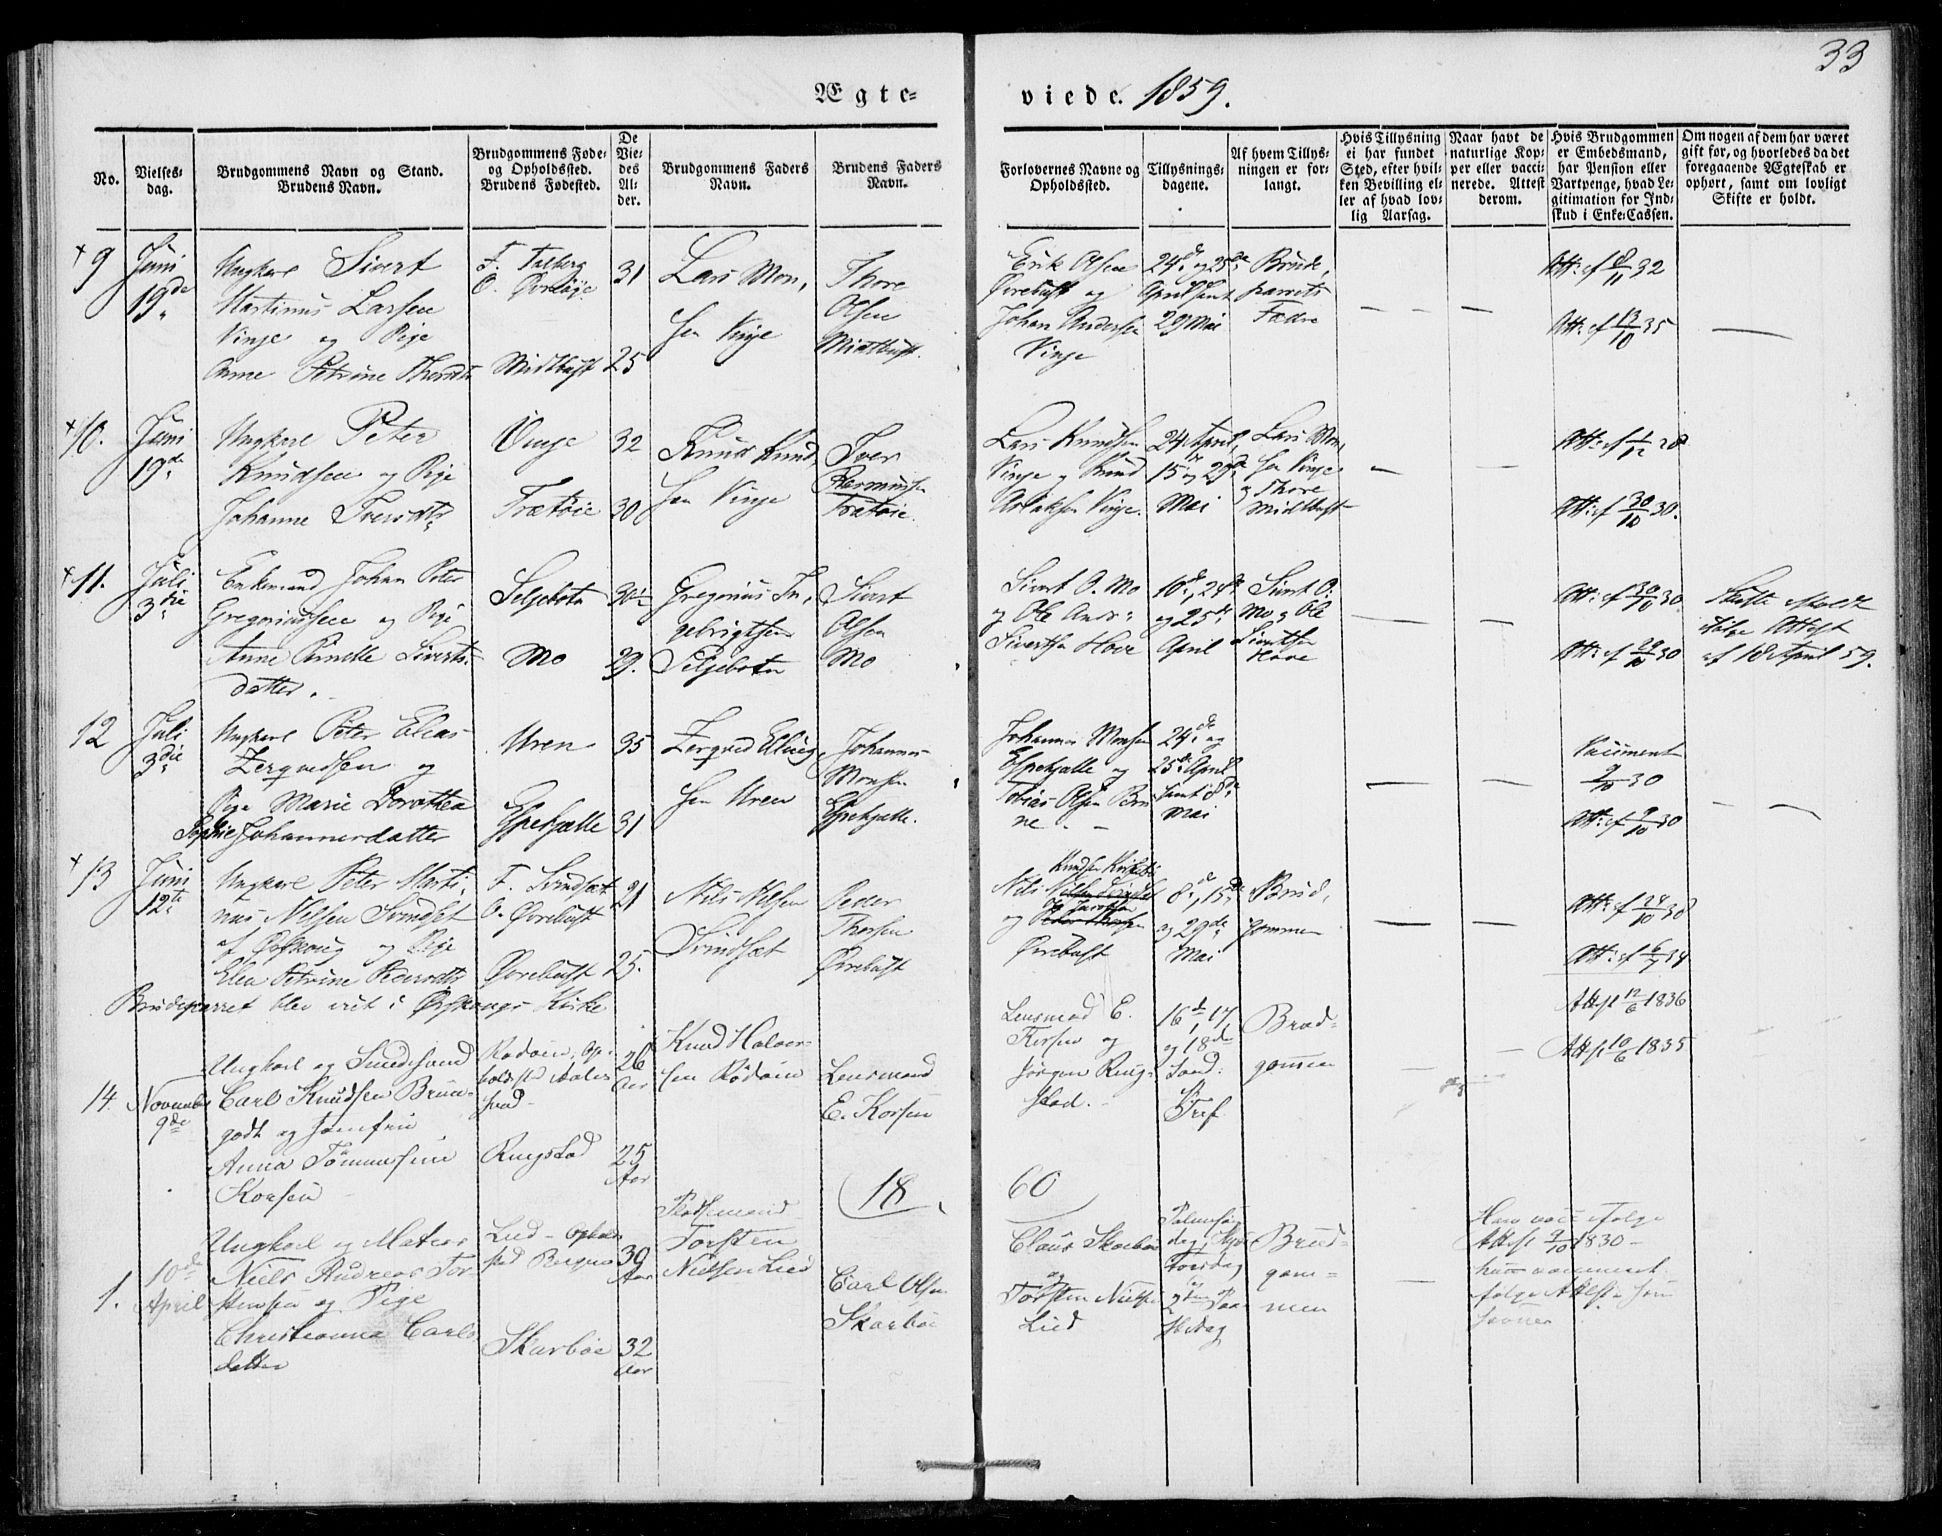 33
Ægte-
viede. 1859.
No.
Vielses-
dag.
Brudgommens Navn og Stand.
Brudens Navn.
Brudgommens Føde-
og Opholdssted.
Brudens Fødested.
De
Vie-
des
Al-
der.
Brudgommens Faders
Navn.
Brudens Faders
Navn.
Forlovernes Navne og
Opholdssted.
Tillysnings-
dagene.
Af hvem Tillys-
ningen er for-
langt.
Hvis Tillysning
ei har fundet
Sted, efter hvil-
ken Bevilling el-
ler af hvad lov-
lig Aarsag.
Naar havt de
naturlige Kop-
per eller vacci-
nerede. Attest
derom.
Hvis Brudgommen
er Embedsmand,
har Pension eller
Vartpenge, hvad Le-
gitimation for Ind-
skud i Enke-Cassen.
Om nogen af dem har været
gift før, og hvorledes da det
foregaaende Ægteskab er
ophørt, samt om lovligt
Skifte er holdt.
+ 9
Juni
19de
Ungkarl Sivert
Martinus Larsen
Vinje og Pige
Anne Petrine Thorsdtr
F. Talberg
Midtbust
31
25
Lars Mon,
sen Vinje
Thore
Olsen
Midtbust.
Erik Olsen
Øvrebust og
Johan Andersen
Vinje
24de og 25de
April samt
29 Mai
Brude,
parrets
Fædre
Att: af 8/11 32
Att: af 13/10 35
+ 10.
Juni
19de
Ungkarl Peter
Knudsen og Pige
Johanne Iversdtr
Vinje
Trætøie
32
30
Knud Knud,
sen Vinje
Iver
Rasmusen
Trætøie.
Lars Knudsen
Vinje og Knud
Aslaksen Vinje.
24 April,
15 og 29de
Mai
Lars Mon,
sen Vinje
og Thore
Midtbust
Att: af 1/12 28
Att: af 30/10 30.
+ 11.
Juli
3die
Enkemand Johan Peter
Gregoriussen og Pige
Anne Pernelle Siverts-
datter.
Seljebotn
Mo
30½
29.
Gregorius In,
gebrigtsen
Seljebotn
Sivert
Olsen
Mo
Sivert O. Mo
og Ole Andr:
Sivertsen Hove
10de, 24de
og 25de
April
Sivert O.
Mo og Ole
Sivertsen
Hove
Att: af 30/10 30.
Att: af 29/10 30
Skifte
ifølge Attest
af 18 April 59.
12
Juli
3die
Ungkarl Peter Elias
Zerqvedsen og
Pige Marie Dorothea
Sophie Johannesdatter
Uren
Espehjelle
35
31
Zerqved Elling,
sen Uren
Johannes
Monsen
Espehjelle.
Johannes Monsen
Espehjelle og
Tobias Olsen Bru
ne.
24de og
25de April
samt 8de
Mai
9/10 30
Att: af 9/10 30
+ 13
Juni
12te
Ungkarl Peter Marti,
nus Nilsen Svindset
af Ørskoug og Pige
Elen Petrine Pedersdtr
Brudeparret blev viet i Ørskougs Kirke
F. Svindset
O. Øvrebust
Øvrebust
21
25.
Nils Nilsen
Svindsæt
Peder
Thorsen
Øvrebust
Nils
og
Øvrebust
8de, 15de
og 29de
Mai
Brud,
gommen
Att: af 24/10 38
Att: af 6/7 34
14.
November
9de
Ungkarl og Smedesvend
Carl Knudsen Brun-
godt og Jomfru
Anna Tømmesine
Korsen
Rødøien, Op-
holdssted Aales-
sund.
Ringstad
26
Aar
25
Aar
Knud Halvor-
sen Rødøien
Lensmand
E. Korsen
Lensmad E.
Korsen og
Jørgen Ring-
stad.
16de, 17
og 18de
Sønd:
Tref.
Brud-
gomen
Attest 12/6 1836
Attest 10/6 1835
18
60
1.
10de
April
Ungkarl og Matros
Niels Andreas Tor-
stensen og Pige
Christianna Carls
datter
Lied - Ophold
sted Bergen
Skarbøe
30
Aar
32
Aar
Pladsmand
Torsten
Nielsen Lied
Carl Olsen
Skarbøe
Claus Skarbøe
og
Torsten Nielsen
Lied
Palmesøn
dag, Skjær
Torsdag
og
2den Paa
skedag
Brud-
gom-
men
Attest 9/10 1830 -